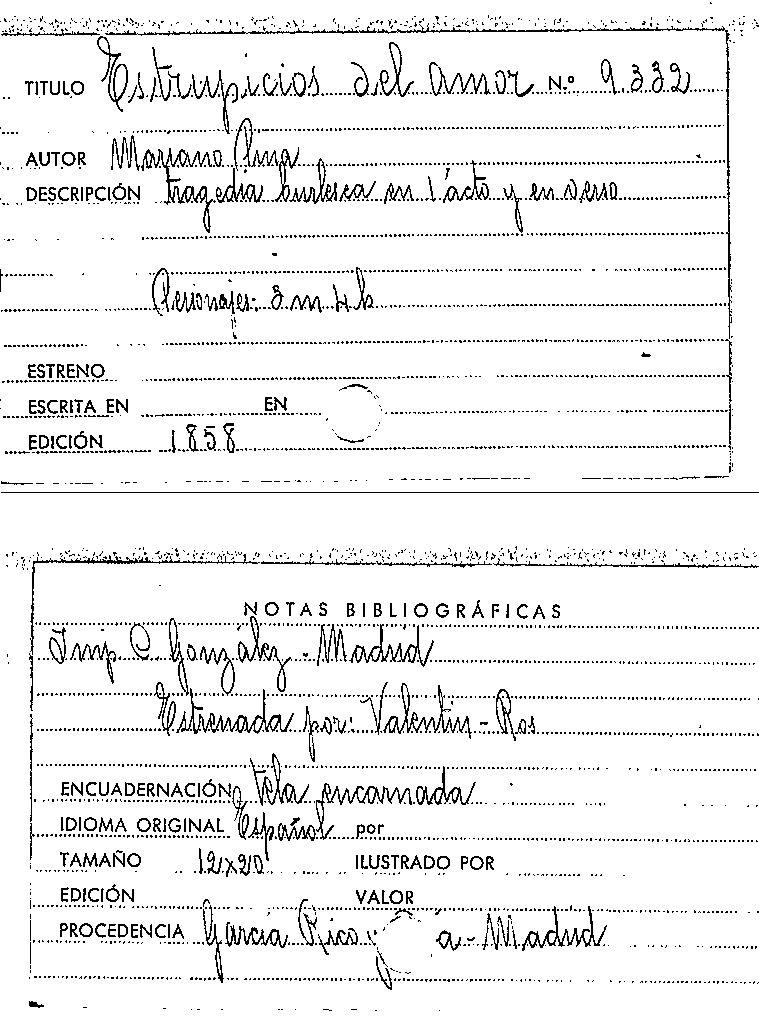 TITULO Estrupicios del amor N.º 9.332
AUTOR Mariano Pina
DESCRIPCIÓN tragedia burlesca en 1 acto y en verso
Personajes: 3 m 4 h
ESTRENO
ESCRITA EN EN
EDICIÓN 1858
NOTAS BIBLIOGRÁFICAS
Imp C. González - Madrid
Estrenada por: Valentin - Ros
ENCUADERNACIÓN tela encarnada
IDIOMA ORIGINAL Español por
TAMAÑO 12x20 ILUSTRADO POR
EDICIÓN VALOR
PROCEDENCIA García Rico y a - Madrid